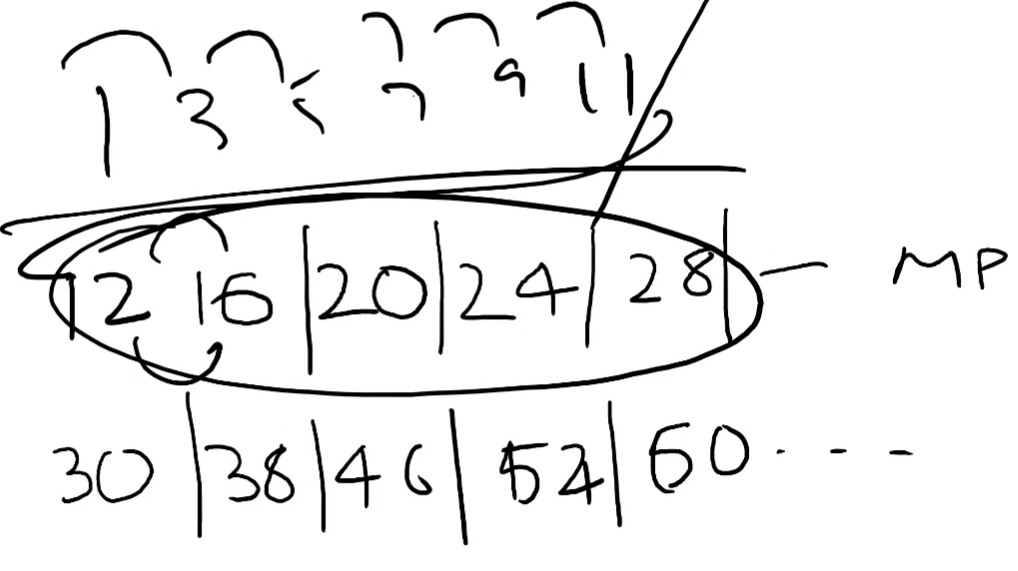 1 3 5 7 9 11
12 16 | 20 | 24 | 28 | — MP
30 | 38 | 46 | | 60 - - - -